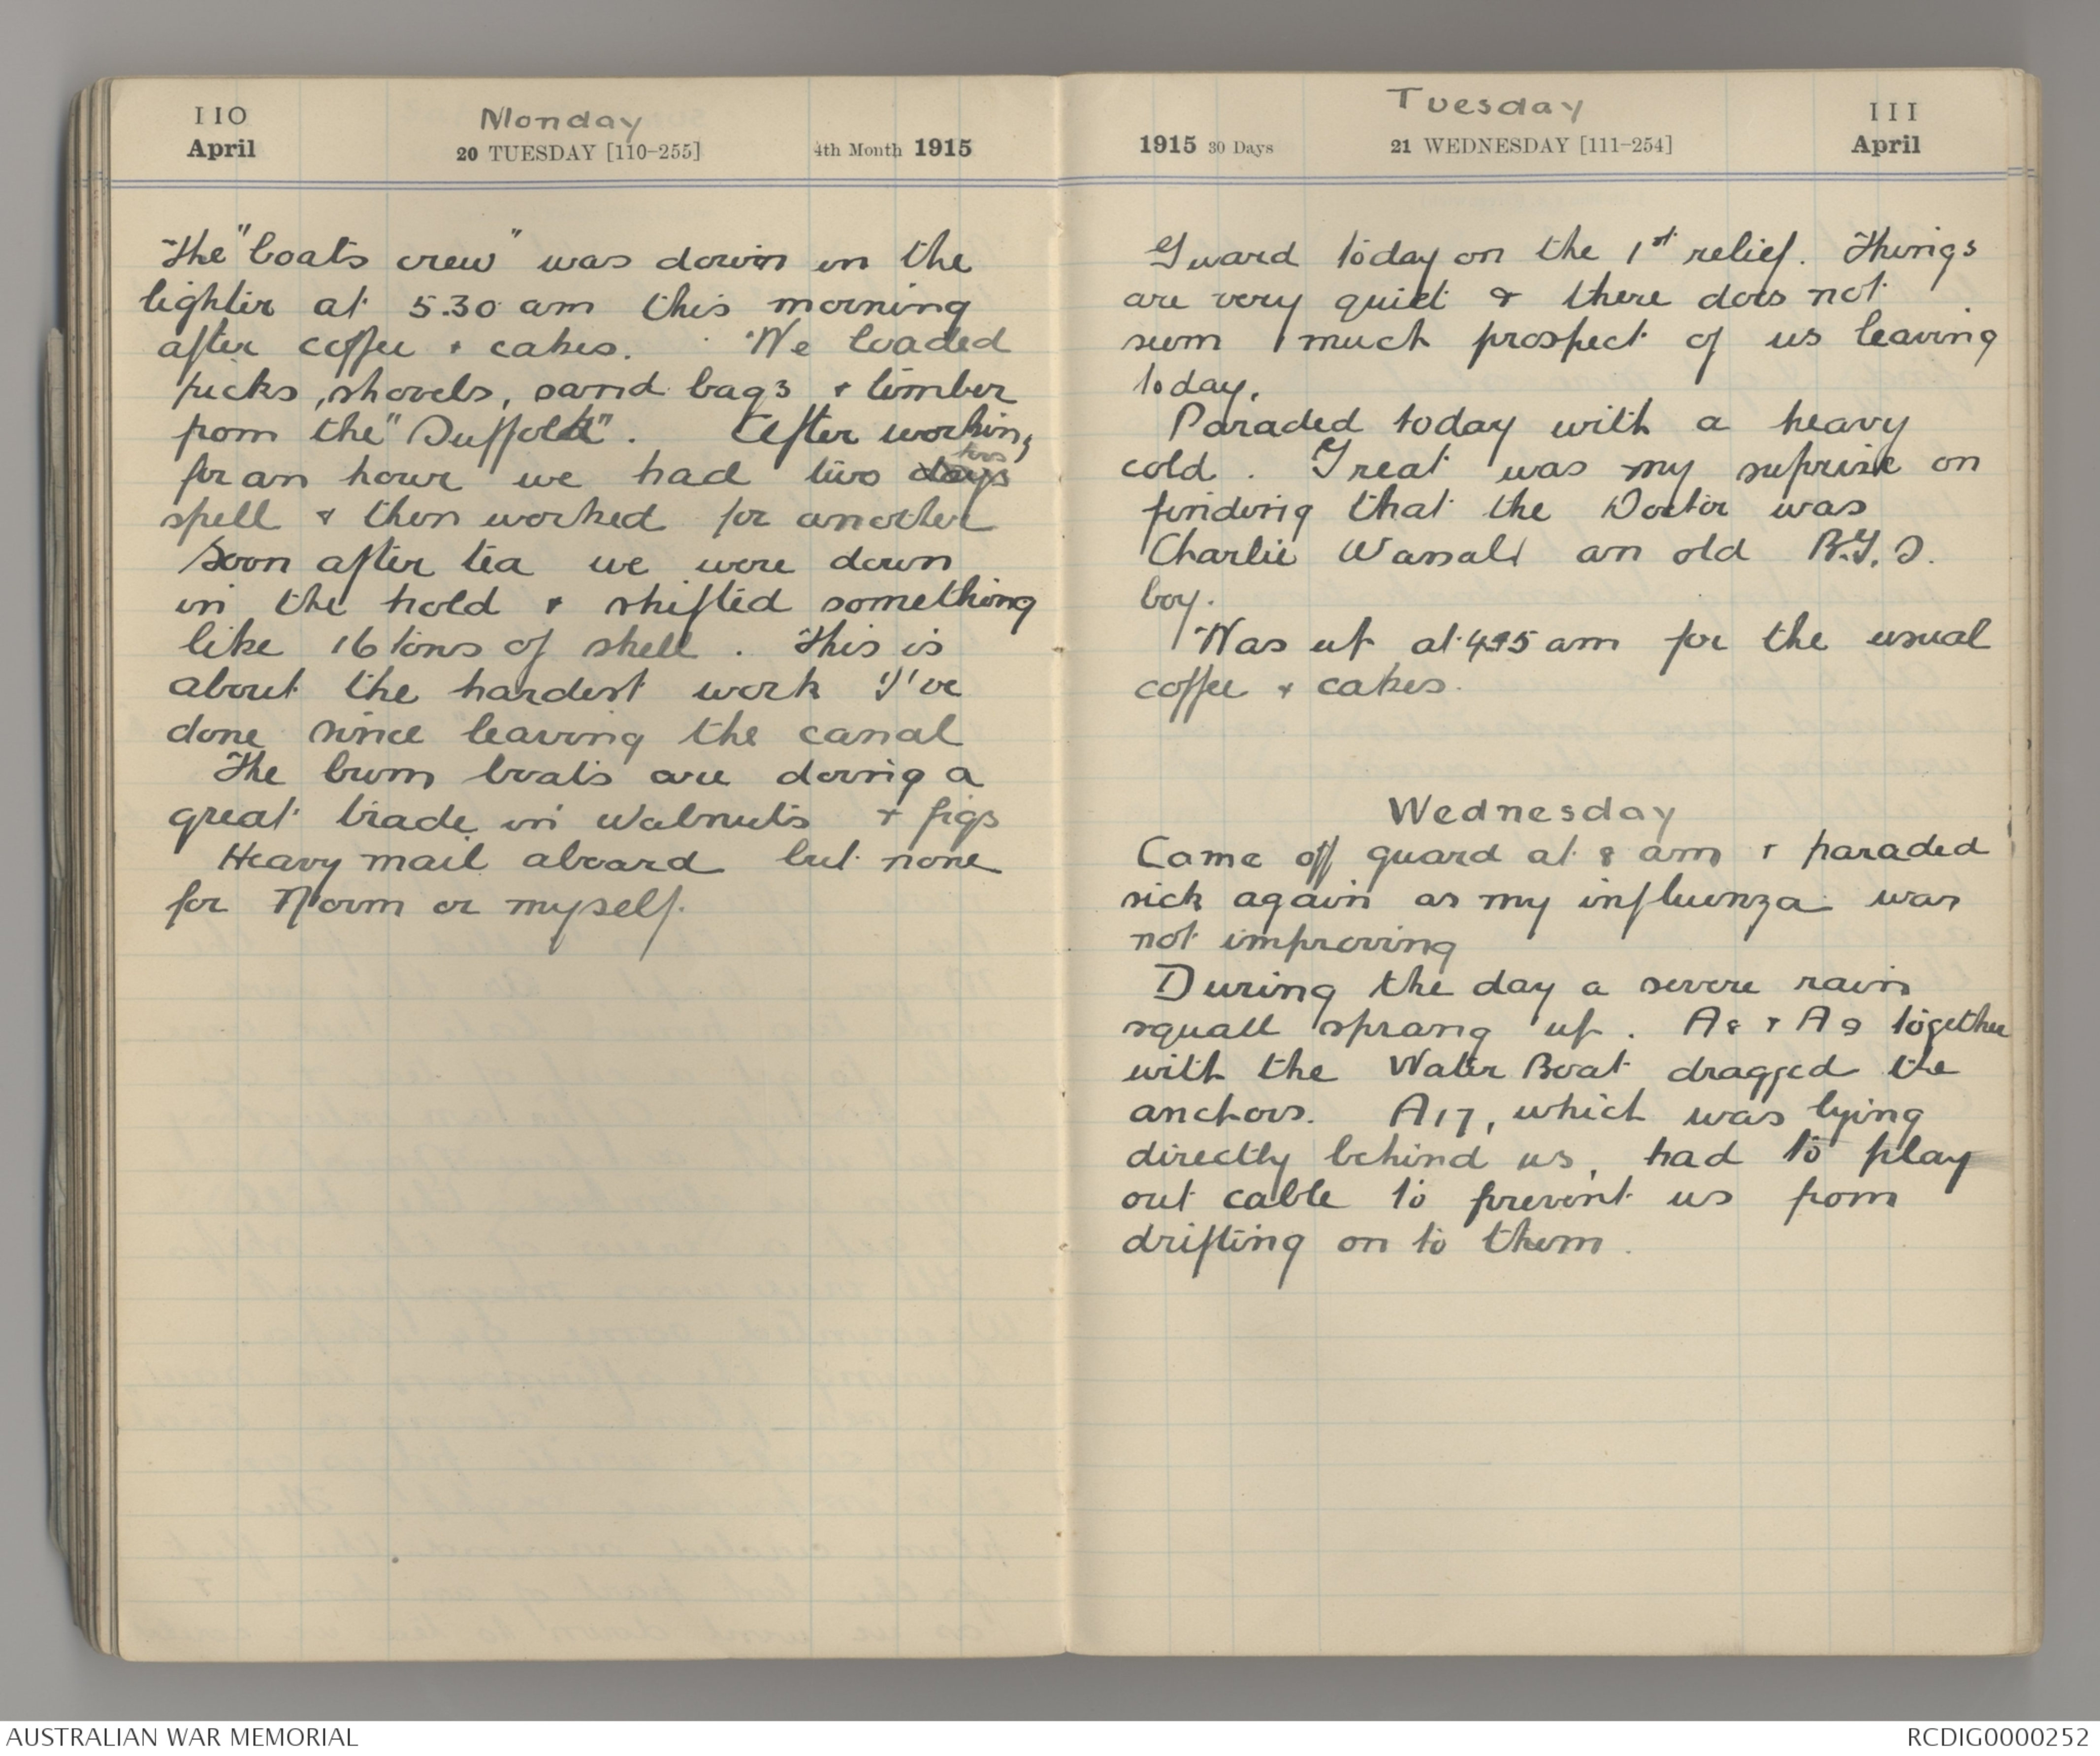 110
April
Monday
20 TUESDAY [110-255]
4th Month 1915
The "boats crew" was down in the
lighter at 5.30 am this morning
after coffee & cakes. We loaded
picks, shovels, sand bags & timber
from the "Suffolk". After working
for an hour we had two days hrs
spell & then worked for another
Soon after tea we were down
in the hold & shifted something
like 16 tons of shell. This is
about the hardest work I've
done since leaving the canal
The bum boats are doing a
great trade in walnuts & figs
Heavy mail aboard but none
for Norm or myself.
Tuesday
1915 30 Days
21 WEDNESDAY [111-254]
111
April
Guard today on the 1st relief. Things
are very quiet & there does not
seem much prospect of us leaving
today.
Paraded today with a heavy
cold. Great was my suprise on
finding that the Doctor was
Charlie an old B.G.S.
boy.
Was up at am for the usual
coffee & cakes.
Wednesday
Came off guard at 8 am & paraded
sick again as my influenza was
not improving
During the day a severe rain
squall sprang up. A8 & A9 together
with the Water Boat dragged the
anchors. A17, which was lying
directly behind us, had to play
out cable to prevent us from
drifting on to them.
AUSTRALIAN WAR MEMORIAL
RCDIG0000252